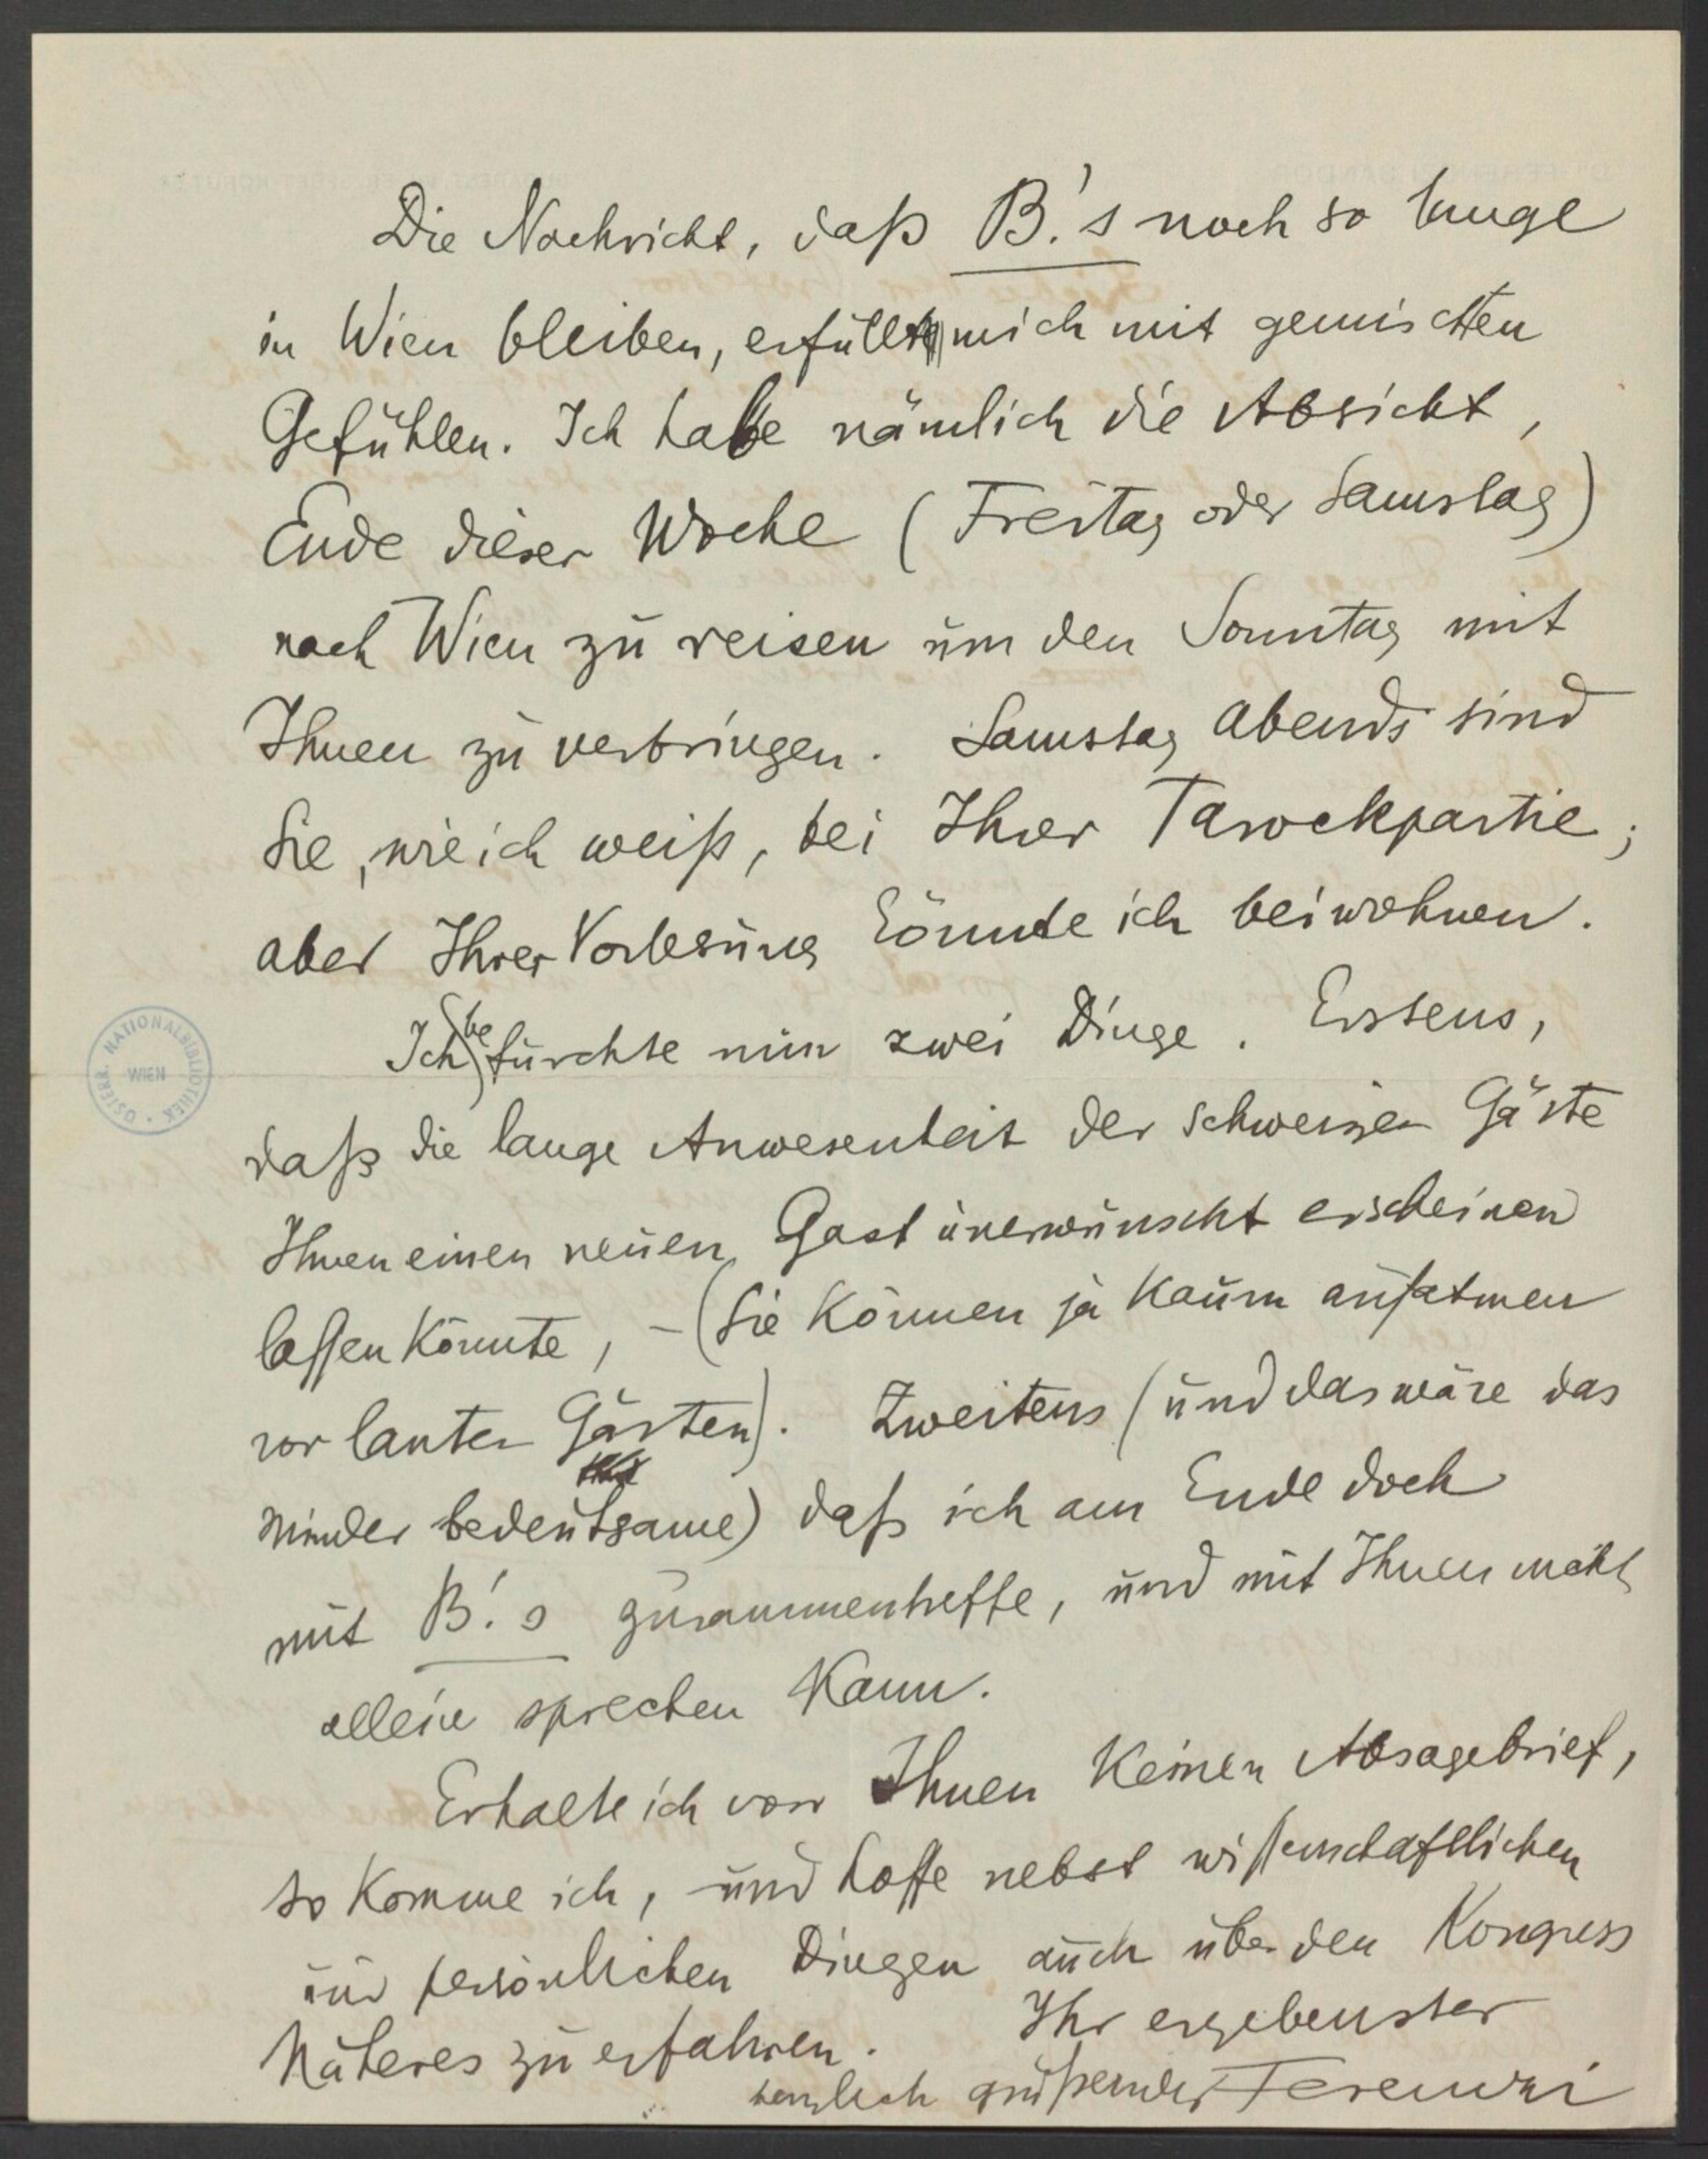 Die Nachricht, daß B.'s noch so lange
in Wien bleiben, erfüllt mich mit gemischten
Gefühlen. Ich habe nämlich die Absicht,
Ende dieser Woche (Freitag oder Samstag)
nach Wien zu reisen um den Sonntag mit
Ihnen zu verbringen. Samstag abends sind
Sie, wie ich weiß, bei Ihrer Tarockpartie;
aber Ihrer Vorlesung könnte ich beiwohnen.
Ich befürchte nun zwei Dinge. Erstens,
daß die lange Anwesenheit der schweizer Gäste
Ihnen einen neuen Gast unerwünscht erscheinen
lassen könnte, – (Sie können ja kaum aufatmen
vor lauter Gästen). Zweitens (und das wäre das
minder bedeutsame) daß ich am Ende doch
mit B.'s zusammentreffe, und mit Ihnen nicht
allein sprechen kann.
Erhalte ich von Ihnen keinen Absagebrief,
so komme ich, und hoffe nebst wissenschaftlichen
und persönlichen Dingen auch über den Kongress
Näheres zu erfahren. Ihr ergebenster
herzlich grüßender Ferenczi
ÖSTERR. NATIONALBIBLIOTHEK
WIEN